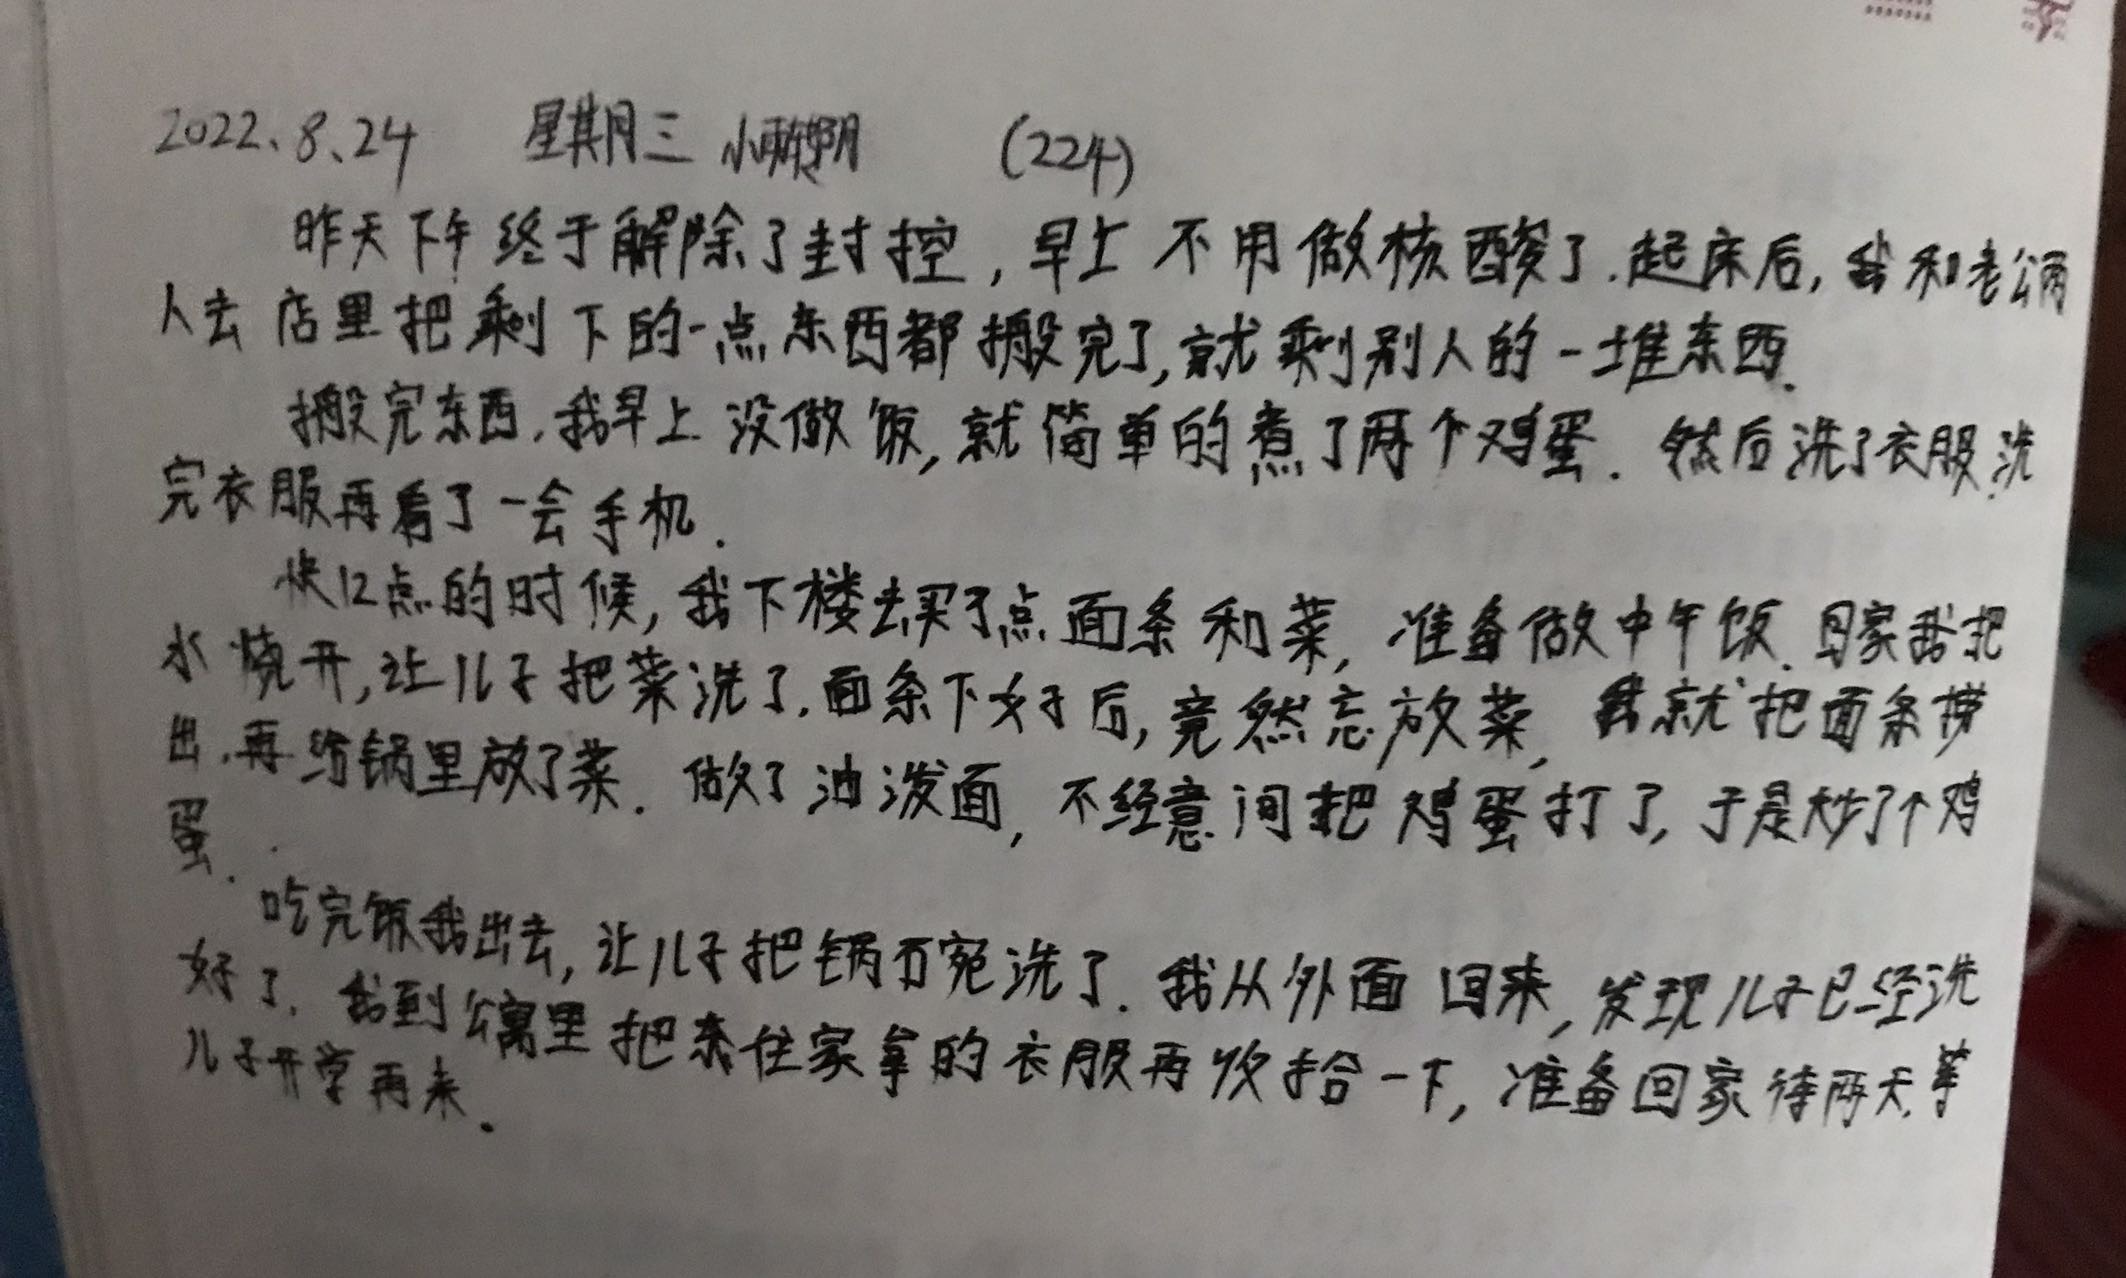 2022、8、24 星期三 小雨转阴 (224)
昨天下午终于解除了封控,早上不用做核酸了.起床后,我和老公两
人去店里把剩下的一点东西都搬完了,就剩别人的一堆东西.
搬完东西.我早上没做饭,就简单的煮了两个鸡蛋.然后洗了衣服.洗
完衣服再看了一会手机.
快12点的时候,我下楼去买了点面条和菜,准备做中午饭.回家我把
水烧开,让儿子把菜洗了.面条下好后,竟然忘放菜,我就把面条捞
出.再给锅里放了菜.做了油泼面,不经意间把鸡蛋打了,于是炒了个鸡
蛋.
吃完饭我出去,让儿子把锅碗洗了.我从外面回来,发现儿子已经洗
好了.我到公寓里把来住家拿的衣服再收拾一下,准备回家待两天.等
儿子开学再来.